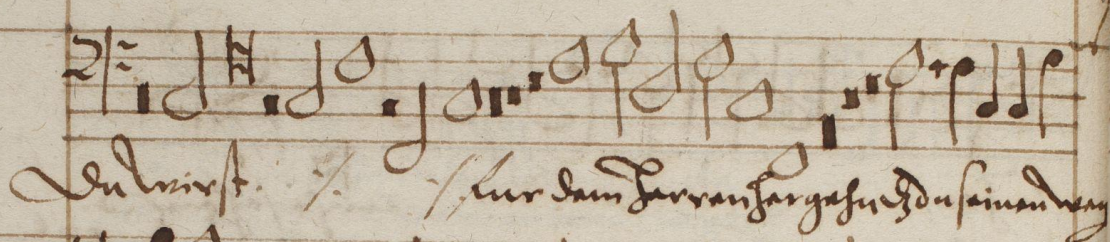 Du wirst ·/· ·/· fur dem herren hergehn dz du seinen weg